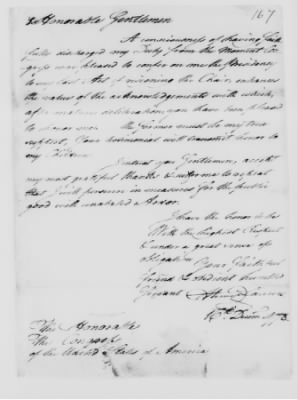 167
Honorable Gentlemen
A consciousness of having faith
fully discharged my Duty from the Moment Con
gress was pleased to confer on me the Presidency
to my last Act of resigning the Chair, enhances
the value of the acknowledgements with which,
after mature deliberation you have been pleased
to honor me. the former must do my true
respect, Your testimonial will transmit honor to
my Children.
I intreat you, Gentlemen, accept
my most grateful thanks & suffer me to repeat
that I will persevere in measures for the public
good with unabated Ardor.
I have the honor to be
With the highest Respect
& under a great sense of
obligation
Your faithful
friend & obedient humble
Servant
The Honorable
The Congress
of the United States of America